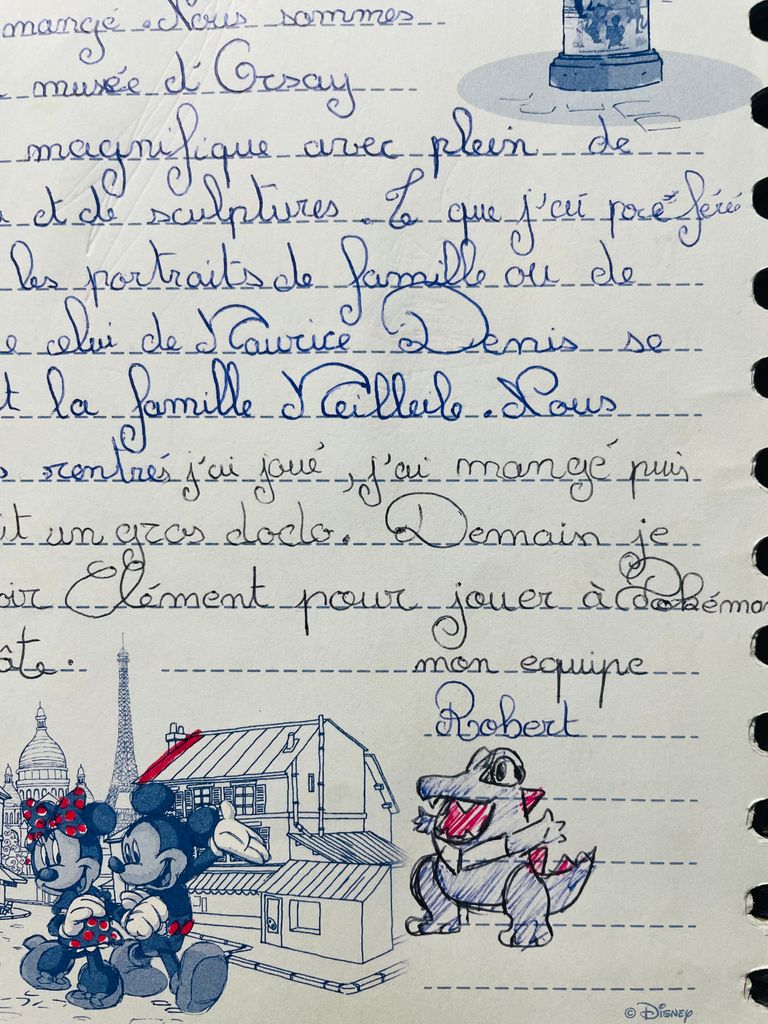 mangé. Nous sommes
musée d'Orsay
magnifique avec plein de
et de sculptures. Ce que j'ai préféré
les portraits de famille ou de
celui de Maurice Denis se
la famille Meillerle. Nous
rentrés j'ai joué, j'ai mangé puis
un gros dodo. Demain je
Clément pour jouer à Pokémon
mon equipe
Robert
© Disney